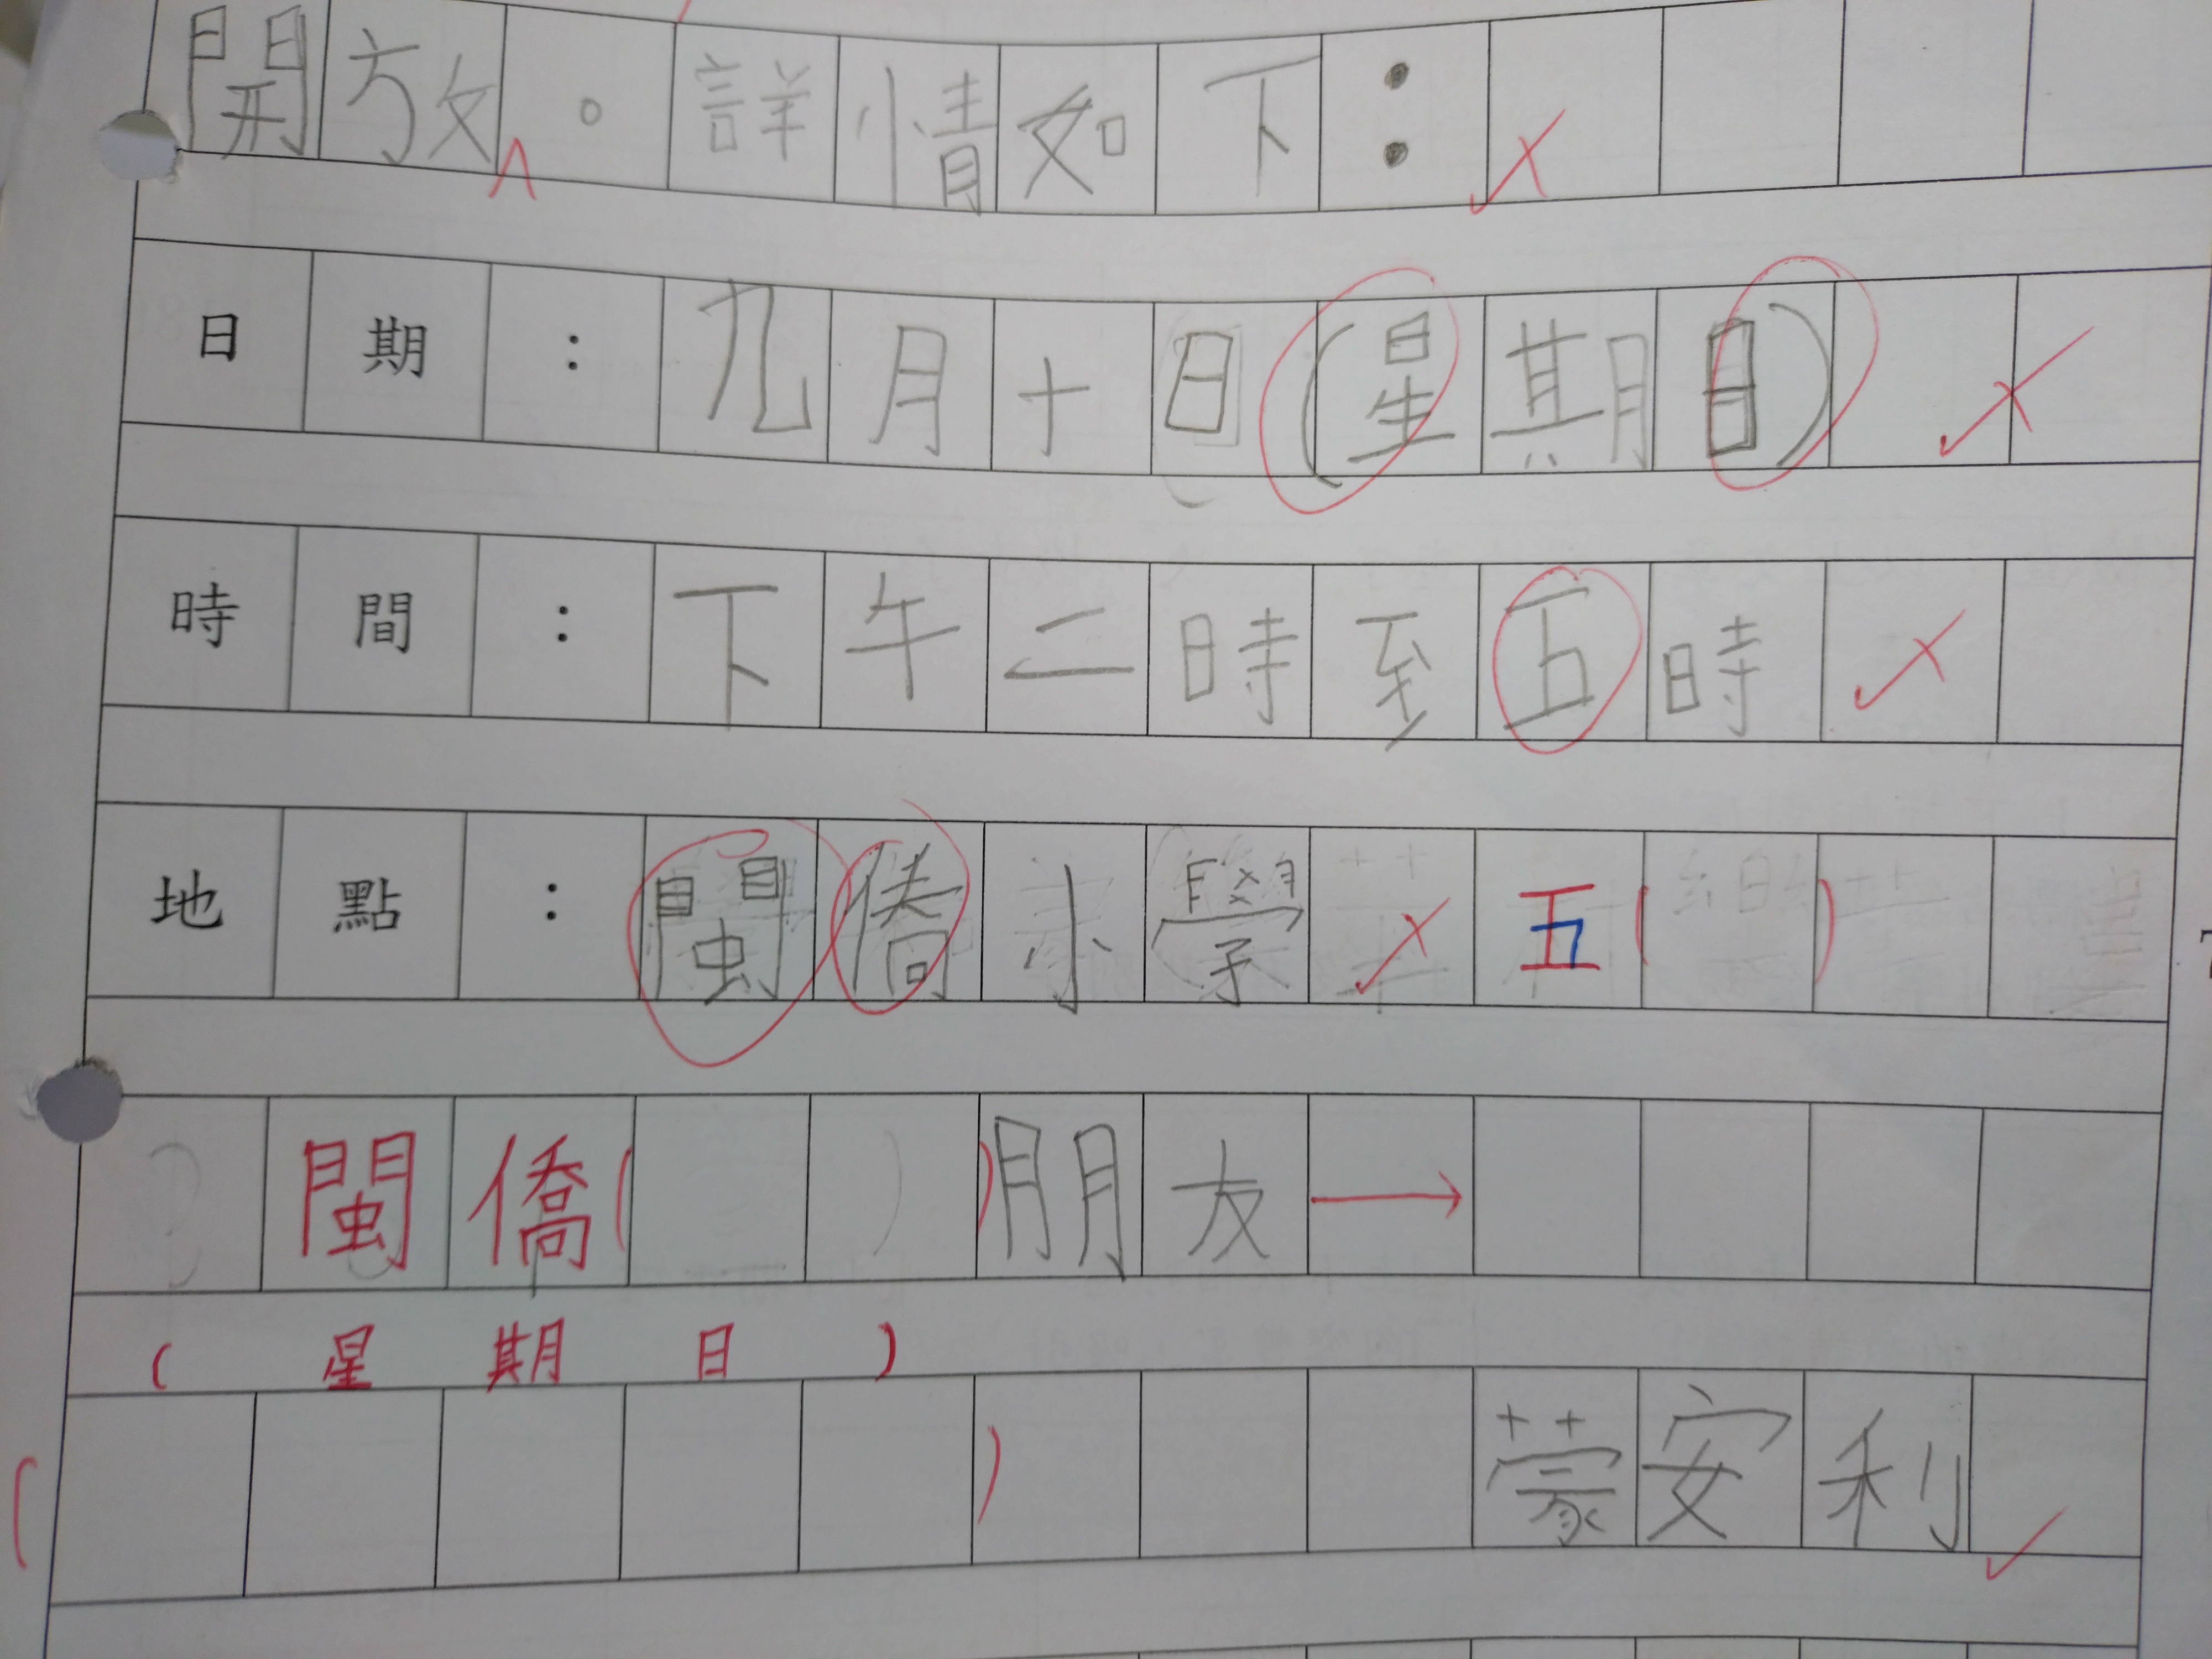 開放。詳情如下：
日期：九月十日(星期日)
時間：下午二時至五時
地點：閩僑小學 五( )
閩僑( )朋友
(星期日)
( )蒙安利